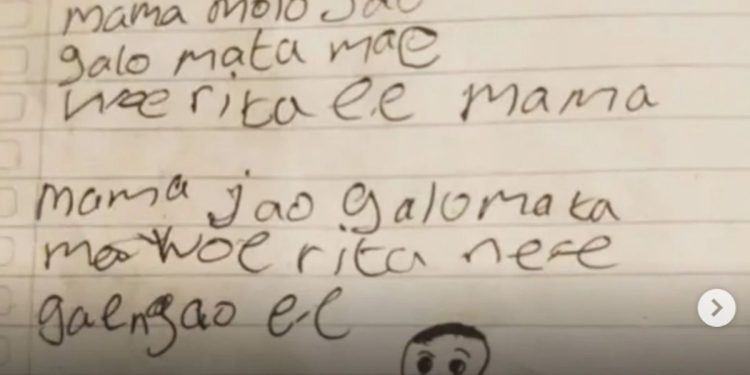 mama molo jao
galo mata mae
woe rita e.e mama
mama jao galo mata
mae woe rita ne-e
gaengao e-e